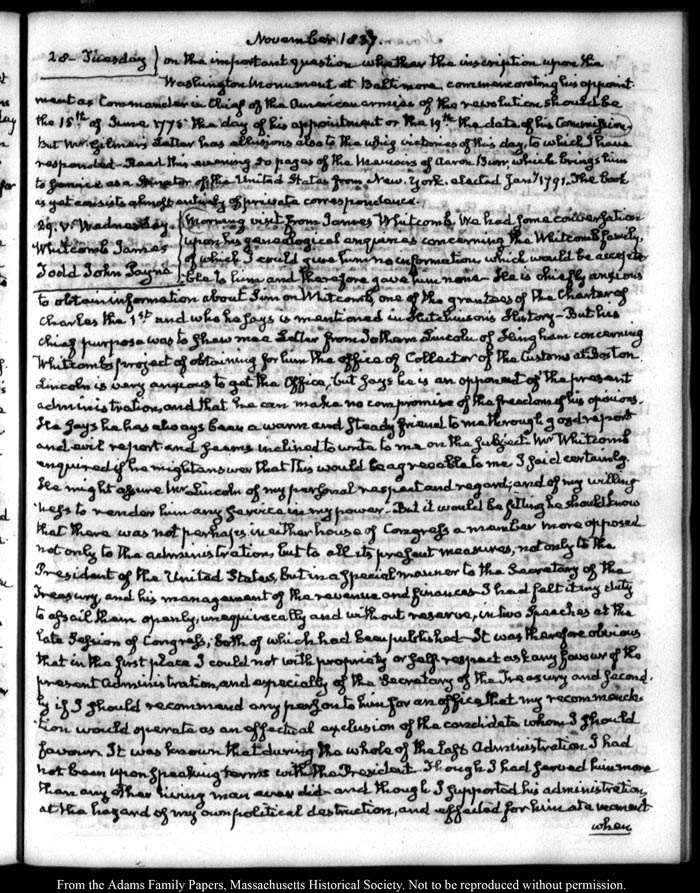 November 1837.
28. Tuesday } on the important question whether the inscription upon the
Washington Monument at Baltimore, commemorating his appoint-
ment as Commander in Chief of the American armies of the revolution should be
the 15th of June 1775 the day of his appointment or the 19th the date of his Commission,
But Mr Gilmer's Letter has allusions also to the whig victories of this day, to which I have
responded. Read this evening 50 pages of the Memoirs of Aaron Burr, which brings him
to service as a Senator of the United States from New-York. elected Jany 1791. The book
as yet consists almost entirely of private correspondence.
29. V. Wednesday. { Morning visit from James Whitcomb. We had some conversation
Whitcomb James { upon his genealogical enquiries concerning the Whitcomb family,
Todd John Payne { of which I could give him no information, which would be accepta-
ble to him and therefore gave him none. He is chiefly anxious
to obtain information about Simon Whitcomb, one of the grantees of the Charter of
Charles the 1st and who he says is mentioned in Hutchinson's History. But his
chief purpose was to shew me a Letter from Jotham Lincoln of Hingham concerning
Whitcomb's project of obtaining for him the office of Collector of the Customs at Boston.
Lincoln is very anxious to get the Office, but says he is an opponent of the present
administration, and that he can make no compromise of the freedom of his opinions.
He says he has always been a warm and steady friend to me through good report
and evil report and seems inclined to write to me on the subject. Mr Whitcomb
enquired if he might answer that this would be agreeable to me. I said certainly.
He might assure Mr Lincoln of my personal respect and regard; and of my willing-
ness to render him any service in my power. But it would be fitting he should know
that there was not perhaps in either house of Congress a member more opposed
not only to the administration, but to all its present measures, not only to the
President of the United States, but in a special manner to the Secretary of the
Treasury, and his management of the revenue and finances. I had felt it my duty
to assail them openly, unequivocally and without reserve, in two speeches at the
late Session of Congress, both of which had been published. It was therefore obvious
that in the first place I could not with propriety or self respect ask any favour of the
present Administration, and especially of the Secretary of the Treasury and second-
ly if I should recommend any person to him for an office, that my recommenda-
tion would operate as an effectual exclusion of the candidate whom I should
favour. It was known that during the whole of the last Administration I had
not been upon speaking terms with the President. Though I had served him more
than any other living man ever did. and though I supported his administration,
at the hazard of my own political destruction, and effected for him at a moment
when
From the Adams Family Papers, Massachusetts Historical Society. Not to be reproduced without permission.